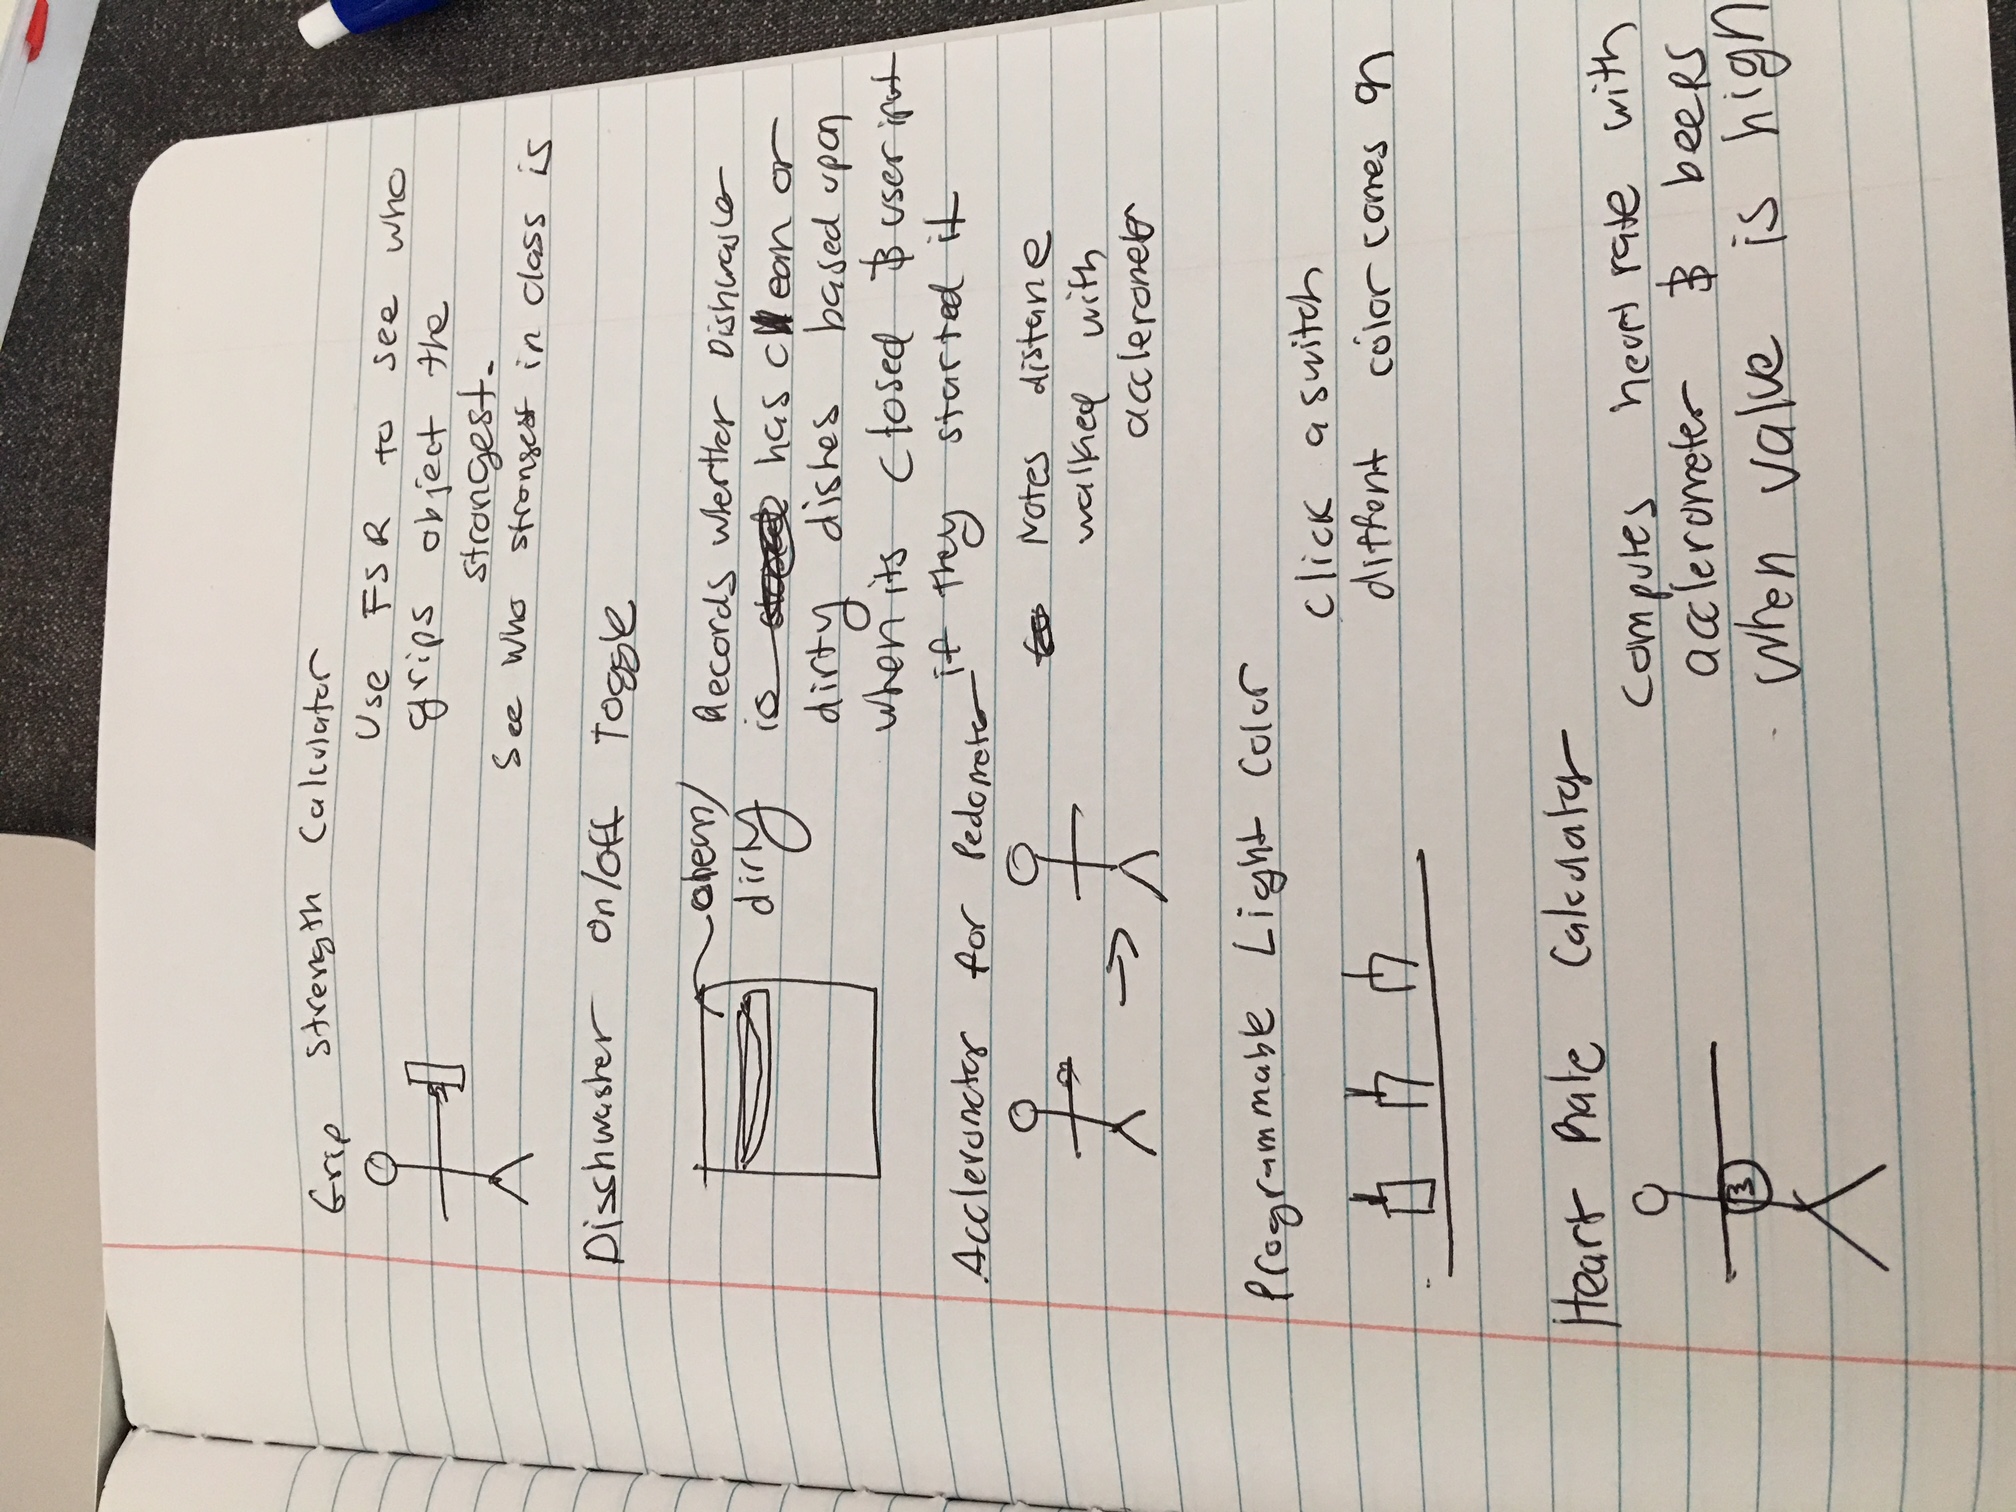 Grip Strength Calculator
Use FSR to see who
grips object the
strongest.
See who strongest in class is
Disshwasher on/off Toggle
clean/
dirty
Records wherther Dishwasher
is has clean or
dirty dishes based upon
when its closed & user input
if they started it
Accleromotor for Pedometer
Notes distane
walked with
acclerometer
Programmable Light Color
Click a switch
diffent color comes on
Heart Rate Calculator
Computes heart rate with
acclerometer & beeps
when value is high